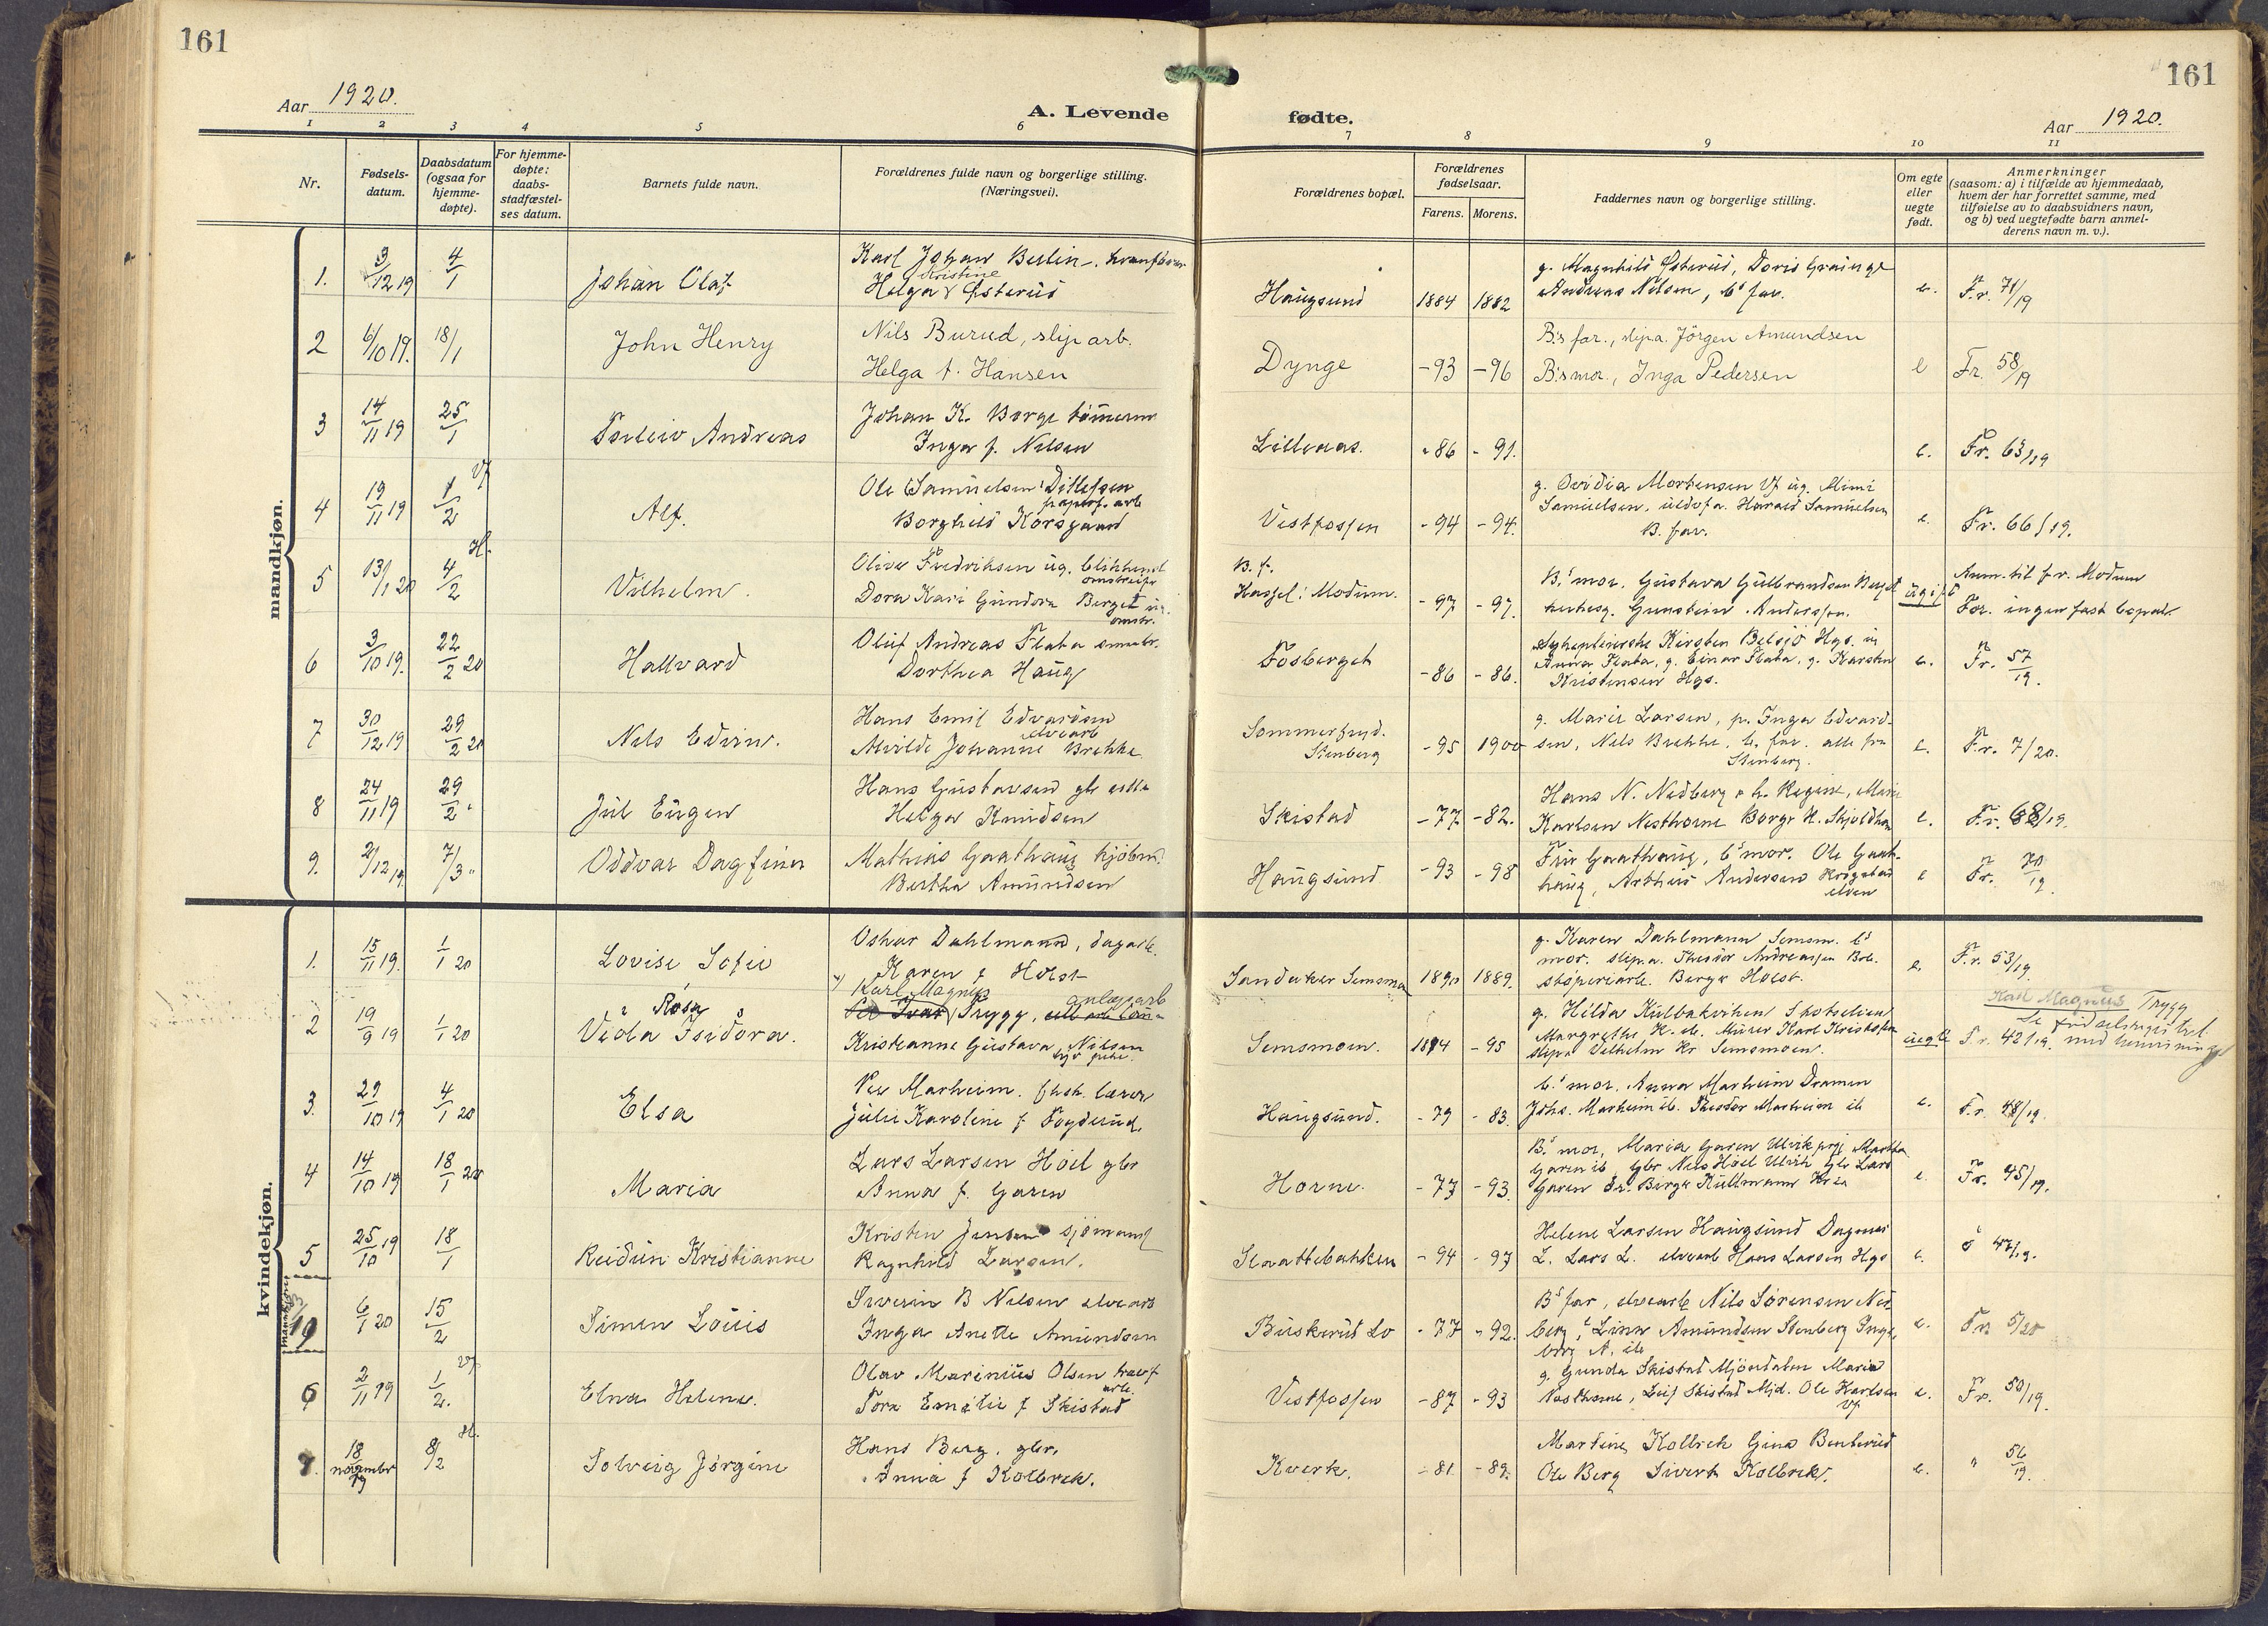 161
161
Aar 1920.
A. Levende
fødte.
Aar 1920.
1 2 3 4 5 6 7 8 9 10 11
Nr.
Fødsels-
datum.
Daabsdatum
(ogsaa for
hjemme-
døpte).
For hjemme-
døpte:
daabs-
stadfæstel-
ses datum.
Barnets fulde navn.
Forældrenes fulde navn og borgerlige stilling.
(Næringsvei).
Forældrenes bopæl.
Forældrenes
fødselsaar.
Farens. Morens.
Faddernes navn og borgerlige stilling.
Om egte
eller
uegte
født.
Anmerkninger
(saasom: a) i tilfælde av hjemmedaab,
hvem der har forrettet samme, med
tilføielse av to daabsvidners navn,
og b) ved uegtefødte barn anmel-
derens navn m. v.).
mandkjøn.
1. 3/12 19 4/1 Johan Olaf Karl Johan Berlin
Kristine
Helga f Østerud Haugsund 1884 1882 g. Magnhild Østerud, Doris
Andreas Nilsen, b's far. e. Fr. 71/19
2 6/10 19. 18/1 John Henry Nils Burud, slip arb.
Helga f. Hansen Dynge -93 -96 B's far., slipa. Jörgen Amundsen
B's mor., Inga Pedersen e Fr. 58/19
3 14/11 19 25/1 Torleiv Andreas Johan K. Borge tömmerm
Inga f. Nilsen Lilleaas. -86 -91. e. Fr. 63/19
4 19/11 19 1/2 Vf Alf. Ole Samuelsen Ditlefsen
papirf. arb
Borghild Korsgaard Vestfossen -94 -94. g. Ovidia Mortensen Vf ug. Mimi
Samuelsen, Harald Samuelsen
B. far. e. Fr. 66/19.
5 13/1 20 4/2 H. Vilhelm. Oliver Fredriksen ug.
Dora Kari Gundora Berget
omstr. B. f.
Hassel: Modum. -97 -97. B's mor. Gustava Gulbrandsen Berget
Gunstein Anderssen. ugift Anm. til fr. Modum
For. ingen fast bopæl.
6 3/10 19. 22/2 20 Hallvard Oluf Andreas Flata
Dorthea Haug Fosberget -86 -86. Sykepleierske Kirsten Belsjö Hgs.
Anna Flata, g. Einar Flata, g. Karsten
Kristensen Hgs. e. Fr. 57/19.
7 30/12 19 29/2 20 Nils Edvin. Hans Emil Edvardsen
elvearb
Alvilde Johanne Brekke Sommerfryd.
Stenberg -95 1900 g. Marie Larsen, p. Inga Edvard-
sen, Nils Brekke, b. far. alle fra
Stenberg. e. Fr. 7/20.
8 24/11 19 29/2 " Jul Eugen Hans Gustavsen gbr
Helga Knudsen Skistad -77 -82. Hans N. Nedberg h. Regine,
Karlsen Nesthorne Borge K. e. Fr. 68/19.
9. 2/12 19 7/3 " Oddvar Dagfinn Mathias Gaathaug kjöbm.
Bertha Amundsen Haugsund -93 -98 Fru Gaathaug, b's mor. Ole Gaat-
haug, Arthur Andersen Krogstad
elven e Fr. 70/19.
kvindekjøn.
1. 15/11 19. 1/1 20 Lovise Sofie Oskar Dahlmann, dagarb.
Karen f Holst Sandaker Semsmoen 1890 1889. g. Karen Dahlmann Semsm. b's
mor. slip.a. Theodor Andreassen
stöperiarb. Birger Holst. e. Fr. 53/19
2 19/9 19 1/1 20 Rosa
Viola Isidora. Karl Magnus
Ivar Trygg, anlægsarb
Kristianne Gustava Nilsen Semsmoen. 1894 -95 g. Hilda Kulbakviken Skotselven
Margrethe K. ib. Murer Karl Kristofersen
slipa Vilhelm Kr Semsmoen. uegte Fr. 42/19.
Karl Magnus Trygg
Se fødselsregistret
med henvisning
3. 29/10 19 4/1 20 Elsa Per Marheim. lærer
Julie Karoline f Fogderud. Haugsund. -79 -83. b's mor. Anna Marheim Drammen
Johs. Marheim ib. Theodor Marheim ib e. Fr. 48/19.
4 14/10 19 18/1 20 Maria Lars Larsen Hoel gbr
Anna f. Garen Horne. -77 -93. B's mor, Maria Garen Ulvik Martha
Garen ib gbr Nils Hoel Ulvik Gbr Lars
Garen Birger Kullmann Kr.ia e. Fr. 45/19.
5 25/10 19 18/1 Reidun Kristianne Kristen Jensen sjömand
Ragnhild Larsen. Slaattebakken -94 -97 Helene Larsen Haugsund Dagmar
L. Lars L. elvearb Hans Larsen Hgs e. " 47/19.
10 6/1 20 15/2 Simen Louis Severin B Nilsen elvearb
Inga Anette Amundsen Buskerud Lo -77 -92. B's far, elvearb Nils Sörensen Ned
berg, Lina Amundsen Stenberg Inge
borg A. ib e. Fr. 5/20
6 2/11 19 1/2. Vf. Elna Helene. Olav Marinius Olsen
arb.
Tora Emelie f Skistad Vestfossen -87 -93 g. Gunda Skistad Mjöndalen Maria
Nesthorne, Leif Skistad Mjd. Ole Karlsen
Vf e. Fr. 50/19.
7. 18
november
19 8/2 H. Solveig Jörgine Hans Berg, gbr.
Anna f Kolbrek. Kverk. -81 -89. Martine Kolbrek Gina Benterud
Ole Berg Sivert Kolbrek. e. " 56/19.